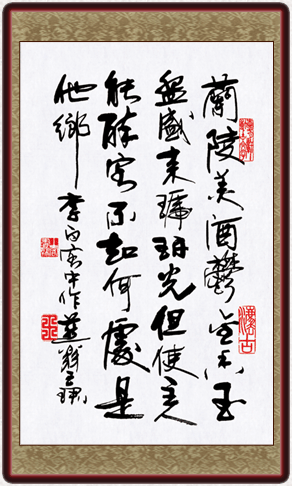 蘭陵美酒鬱金香玉
盌盛來琥珀光但使主人
能醉客不知何處是
他鄉 李白客中作
懷古